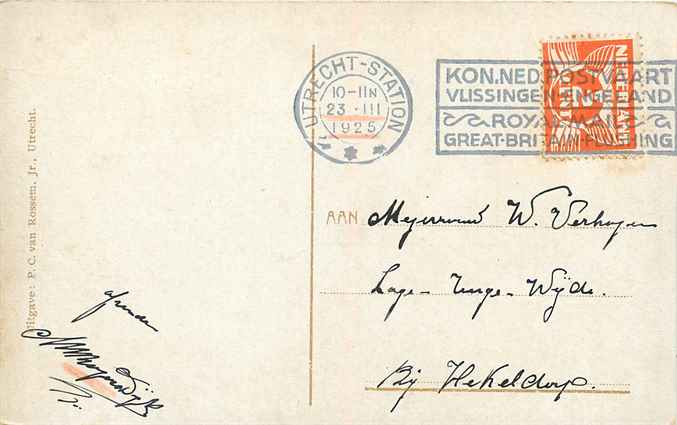 Uitgave: P. C. van Rossem. Jr., Utrecht.
UTRECHT-STATION
10-11N
23 · III
1925
KON.NED.POSTVAART
VLISSINGEN-ENGELAND
ROYAL MAIL
GREAT-BRITAIN-FLUSHING
NEDERLAND
AAN Mejuvrouw W. Verhagen
Lage-Enge-Wijde.
Bij Hekeldorp.